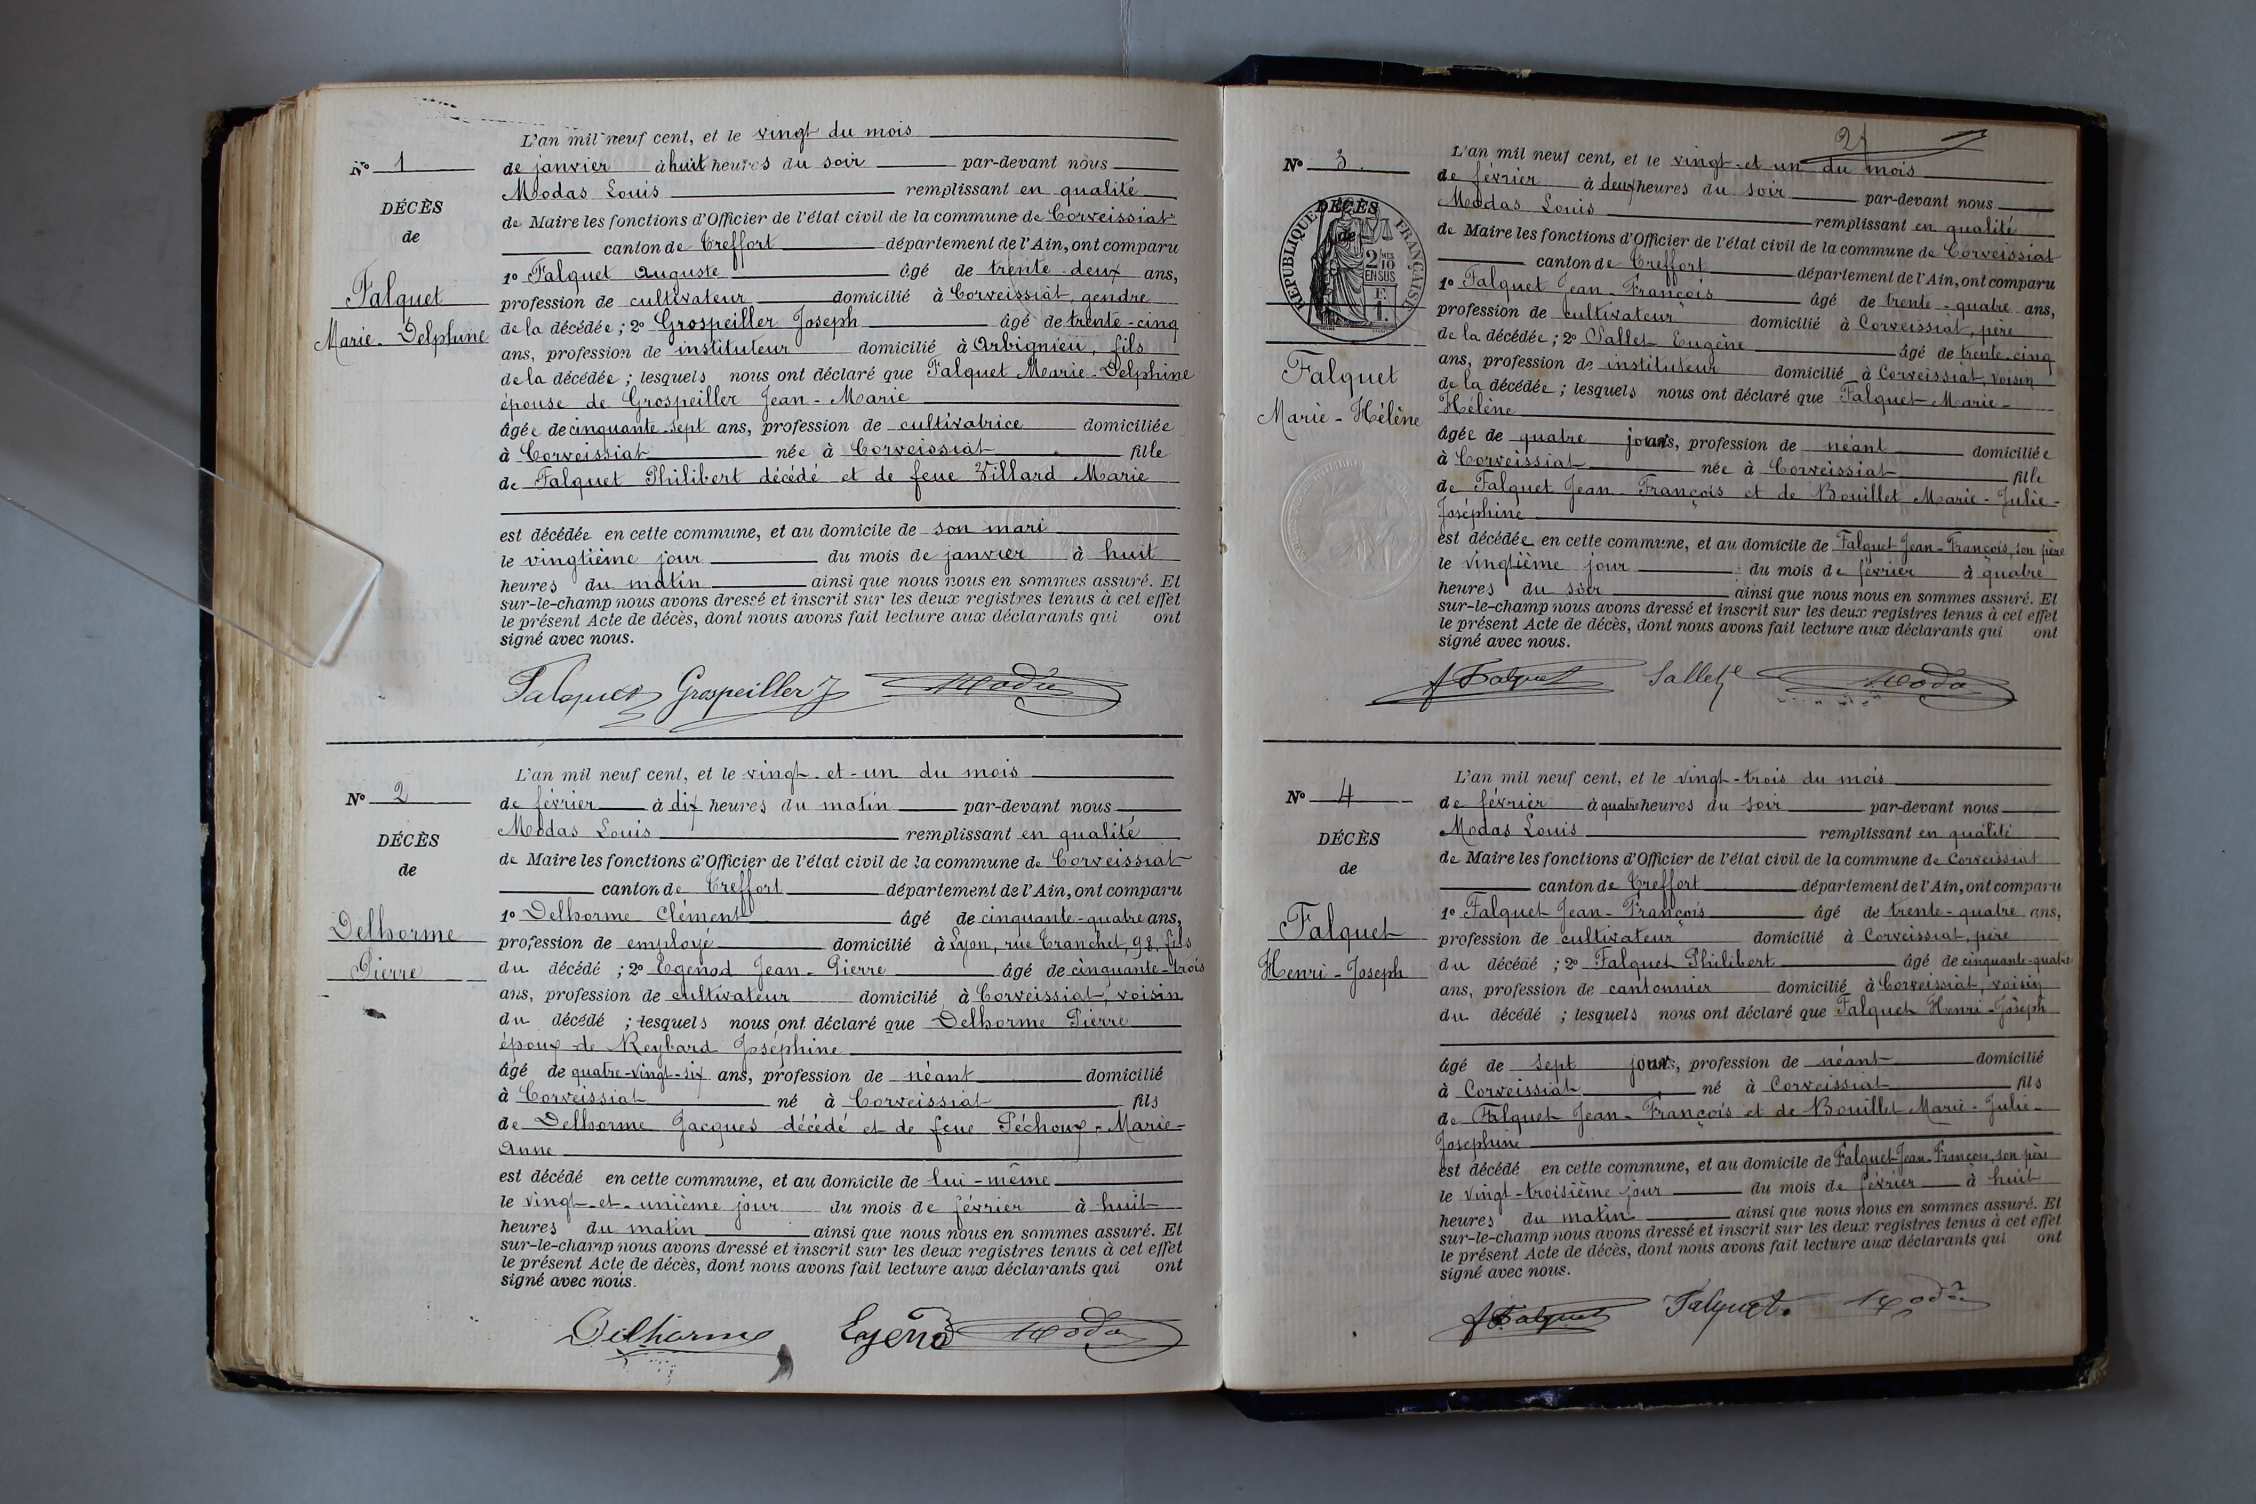 L'an mil neuf cent, et le vingt du mois
N° 1
de janvier à huit heures du soir par-devant nous
Modas Louis remplissant en qualité
DÉCÈS
de Maire les fonctions d'Officier de l'état civil de la commune de Corveissiat
de
canton de Treffort département de l'Ain, ont comparu
1° Falquet Auguste âgé de trente-deux ans,
Falquet
profession de cultivateur domicilié à Corveissiat, gendre
Marie-Delphine
de la décédée ; 2° Grospeiller Joseph âgé de trente-cinq
ans, profession de instituteur domicilié à Arbignieu, fils
de la décédée ; lesquels nous ont déclaré que Falquet Marie-Delphine
épouse de Grospeiller Jean-Marie
âgée de cinquante-sept ans, profession de cultivatrice domiciliée
à Corveissiat née à Corveissiat fille
de Falquet Philibert décédé et de feue Villard Marie
est décédée en cette commune, et au domicile de son mari
le vingtième jour du mois de janvier à huit
heures du matin ainsi que nous nous en sommes assuré. Et
sur-le-champ nous avons dressé et inscrit sur les deux registres tenus à cet effet
le présent Acte de décès, dont nous avons fait lecture aux déclarants qui ont
signé avec nous.
Falquet Grospeiller J Modas
L'an mil neuf cent, et le vingt-et-un du mois
N° 2
de février à dix heures du matin par-devant nous
Modas Louis remplissant en qualité
DÉCÈS
de Maire les fonctions d'Officier de l'état civil de la commune de Corveissiat
de
canton de Treffort département de l'Ain, ont comparu
1° Delhorme Clément âgé de cinquante-quatre ans,
Delhorme
profession de employé domicilié à Lyon, rue Tranchet, 98, fils
Pierre
du décédé ; 2° Egenod Jean-Pierre âgé de cinquante-trois
ans, profession de cultivateur domicilié à Corveissiat, voisin
du décédé ; lesquels nous ont déclaré que Delhorme Pierre
époux de Reybard Joséphine
âgé de quatre-vingt-six ans, profession de néant domicilié
à Corveissiat né à Corveissiat fils
de Delhorme Jacques décédé et de feue Péchoux-Marie-
Anne
est décédé en cette commune, et au domicile de lui-même
le vingt-et-unième jour du mois de février à huit
heures du matin ainsi que nous nous en sommes assuré. Et
sur-le-champ nous avons dressé et inscrit sur les deux registres tenus à cet effet
le présent Acte de décès, dont nous avons fait lecture aux déclarants qui ont
signé avec nous.
Delhorme Egenod Modas
L'an mil neuf cent, et le vingt-et un du mois
N° 3
de février à deux heures du soir par-devant nous
Modas Louis remplissant en qualité
DÉCÈS
de
RÉPUBLIQUE FRANÇAISE
2 MES
10
EN SUS
F.
1.
de Maire les fonctions d'Officier de l'état civil de la commune de Corveissiat
canton de Treffort département de l'Ain, ont comparu
1° Falquet Jean-François âgé de trente-quatre ans,
profession de cultivateur domicilié à Corveissiat, père
de la décédée ; 2° Sallet Eugène âgé de trente-cinq
Falquet
ans, profession de instituteur domicilié à Corveissiat, voisin
Marie-Hélène
de la décédée ; lesquels nous ont déclaré que Falquet Marie-
Hélène
âgée de quatre jours, profession de néant domiciliée
à Corveissiat née à Corveissiat fille
de Falquet Jean-François et de Bouillet Marie-Julie-
Joséphine
est décédée en cette commune, et au domicile de Falquet Jean-François, son père
le vingtième jour du mois de février à quatre
heures du soir ainsi que nous nous en sommes assuré. Et
sur-le-champ nous avons dressé et inscrit sur les deux registres tenus à cet effet
le présent Acte de décès, dont nous avons fait lecture aux déclarants qui ont
signé avec nous.
Falquet Sallet Modas
L'an mil neuf cent, et le vingt-trois du mois
N° 4
de février à quatre heures du soir par-devant nous
Modas Louis remplissant en qualité
DÉCÈS
de Maire les fonctions d'Officier de l'état civil de la commune de Corveissiat
de
canton de Treffort département de l'Ain, ont comparu
1° Falquet Jean-François âgé de trente-quatre ans,
Falquet
profession de cultivateur domicilié à Corveissiat, père
Henri-Joseph
du décédé ; 2° Falquet Philibert âgé de cinquante-quatre
ans, profession de cantonnier domicilié à Corveissiat, voisin
du décédé ; lesquels nous ont déclaré que Falquet Henri-Joseph
âgé de sept jours, profession de néant domicilié
à Corveissiat né à Corveissiat fils
de Falquet Jean-François et de Bouillet Marie-Julie-
Josephine
est décédé en cette commune, et au domicile de Falquet Jean-François, son père
le vingt-troisième jour du mois de février à huit
heures du matin ainsi que nous nous en sommes assuré. Et
sur-le-champ nous avons dressé et inscrit sur les deux registres tenus à cet effet
le présent Acte de décès, dont nous avons fait lecture aux déclarants qui ont
signé avec nous.
Falquet Falquet Modas